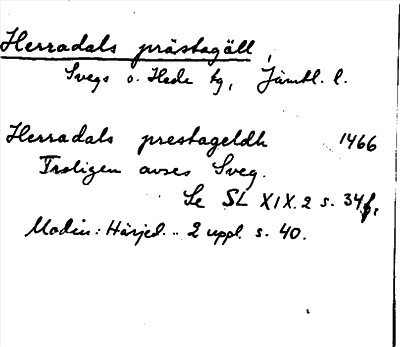 Herradals prästagäll,
Svegs o. Hede tg, Jämtl. l.
Herradals prestageldh 1466
Troligen avses Sveg.
Se SL XIX.2 s. 34f.
Modin: Härjed. .. 2 uppl. s. 40.